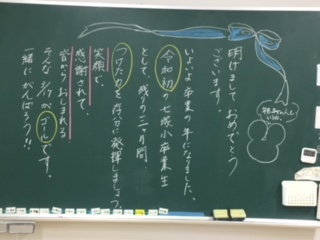 明けまして おめでとう
ございます。
いよいよ 卒業の年になりました。
令和初の七塚小卒業生
として、残りの三ヶ月間、
つけた力を存分に発揮しましょう。
笑顔で、
感謝されて、
皆からおしまれる
そんな 3/17が ゴールです。
一緒にがんばろう!!